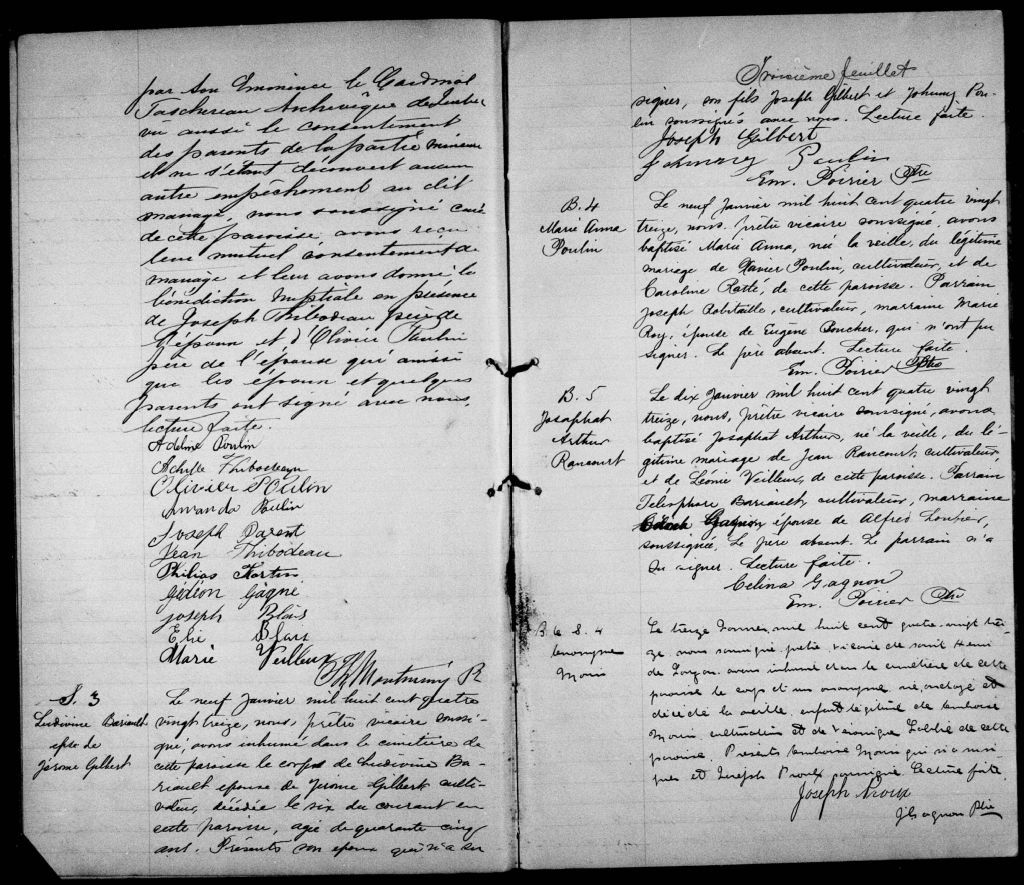 par Son Eminence le Cardinal
Taschereau Archevêque de Québec
vu aussi le consentement
des parents de la partie mineure
et ne s'étant découvert aucun
autre empechement au dit
mariage, nous soussigné curé
de cette paroisse avons reçu
leur mutuel consentement de
mariage et leur avons donné la
bénédiction nuptiale en présence
de Joseph Thibodeau père de
l'époux et d'Olivier Poulin
père de l'épouse qui ainsi
que les époux et quelques
parents ont signé avec nous,
lecture faite.
Adelme Poulin
Achille Thibodeau
Olivier Poulin
Amanda Poulin
Joseph Parent
Jean Thibodeau
Philias Fortin
Gédéon Gagné
joseph Blais
Elie Blais
Marie Veilleux
Montminy
S. 3
Ludivine Bariault
epse de
Jérome Gilbert
Le neuf Janvier mil huit cent quatre
vingt treize, nous, prêtre vicaire soussi-
gné, avons inhumé dans le cimetière de
cette paroisse le corps de Ludivine Ba-
riault epouse de Jérome Gilbert culti-
vateur, décédée le six du courant en
cette paroisse, agée de quarante cinq
ans. Présents son epoux qui n'a su
Troisième feuillet
signer, son fils Joseph Gilbert et Johnny Pou-
lin soussignés avec nous. Lecture faite.
Joseph Gilbert
Johnney Poulin
Em. Poirier Ptre
B. 4
Marie Anna
Poulin
Le neuf Janvier mil huit cent quatre vingt
treize, nous, prêtre vicaire soussigné, avons
baptisé Marie Anna, née la veille, du légitime
mariage de Xavier Poulin, cultivateur, et de
Caroline Ratté, de cette paroisse. Parrain
Joseph Robitaille, cultivateur, marraine Marie
Roy, épouse de Eugène Boucher, qui n'ont pu
signer. Le père absent. Lecture faite.
Em. Poirier Ptre
B. 5
Josaphat
Arthur
Rancourt
Le dix Janvier mil huit cent quatre vingt
treize, nous, prêtre vicaire soussigné, avons
baptisé Josaphat Arthur, né la veille, du lé-
gitime mariage de Jean Rancourt, cultivateur,
et de Léonie Veilleux, de cette paroisse. Parrain
Télesphore Bariault, cultivateur, marraine
Gagnon, épouse de Alfred Loubier,
soussignée. Le père absent. Le parrain n'a
su signer. Lecture faite.
Celina Gagnon
Em. Poirier Ptre
B. 6 S. 4
Anonyme
Morin
Le treize Janvier mil huit cent quatre-vingt trei-
ze nous soussigné prêtre vicaire de saint Henri
de Lauzon avons inhumé dans le cimetière de cette
paroisse le corps d'un anonyme né, ondoyé et
décédé la veille, enfant légitime de Ambroise
Morin cultivateur et de Véronique Labbé de cette
paroisse. Présents Ambroise Morin qui n'a su si-
gner et Joseph Proulx soussigné lecture faite
Joseph Proux
Gagnon Ptre